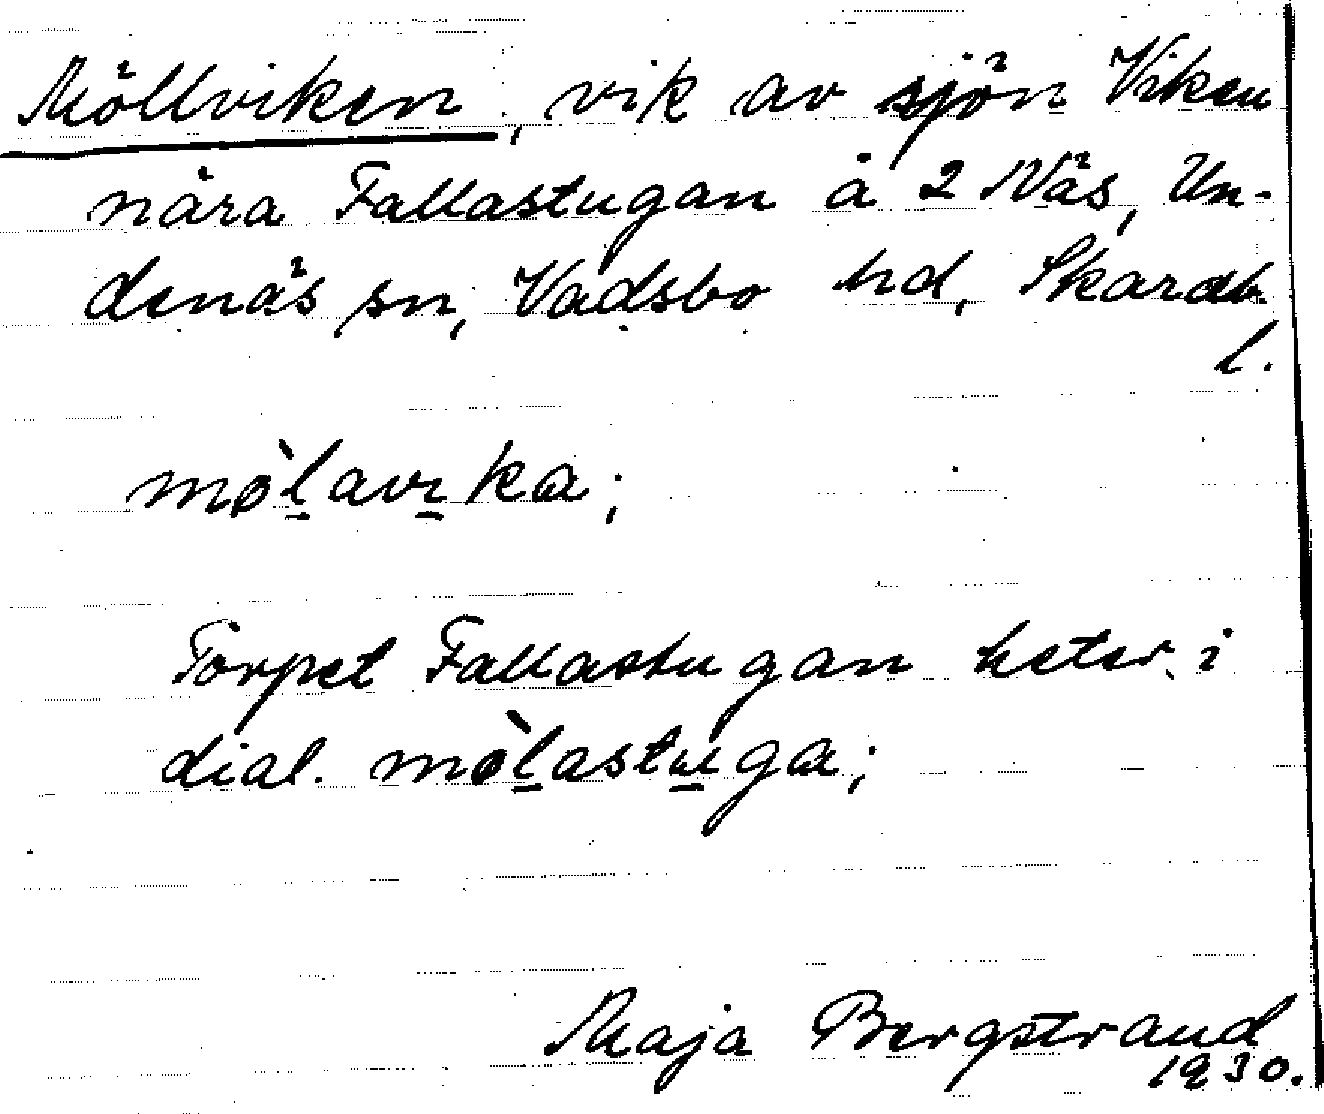 Möllviken, vik av sjön Viken
nära Fallastugan å 2 Näs, Un-
denäs sn, Vadsbo hd, Skarab.
l.
mø̀l̲avɪ̲ka;
Torpet Fallastugan heter i
dial. mø̀l̲astu̲ga;
Maja Bergstrand
1930.